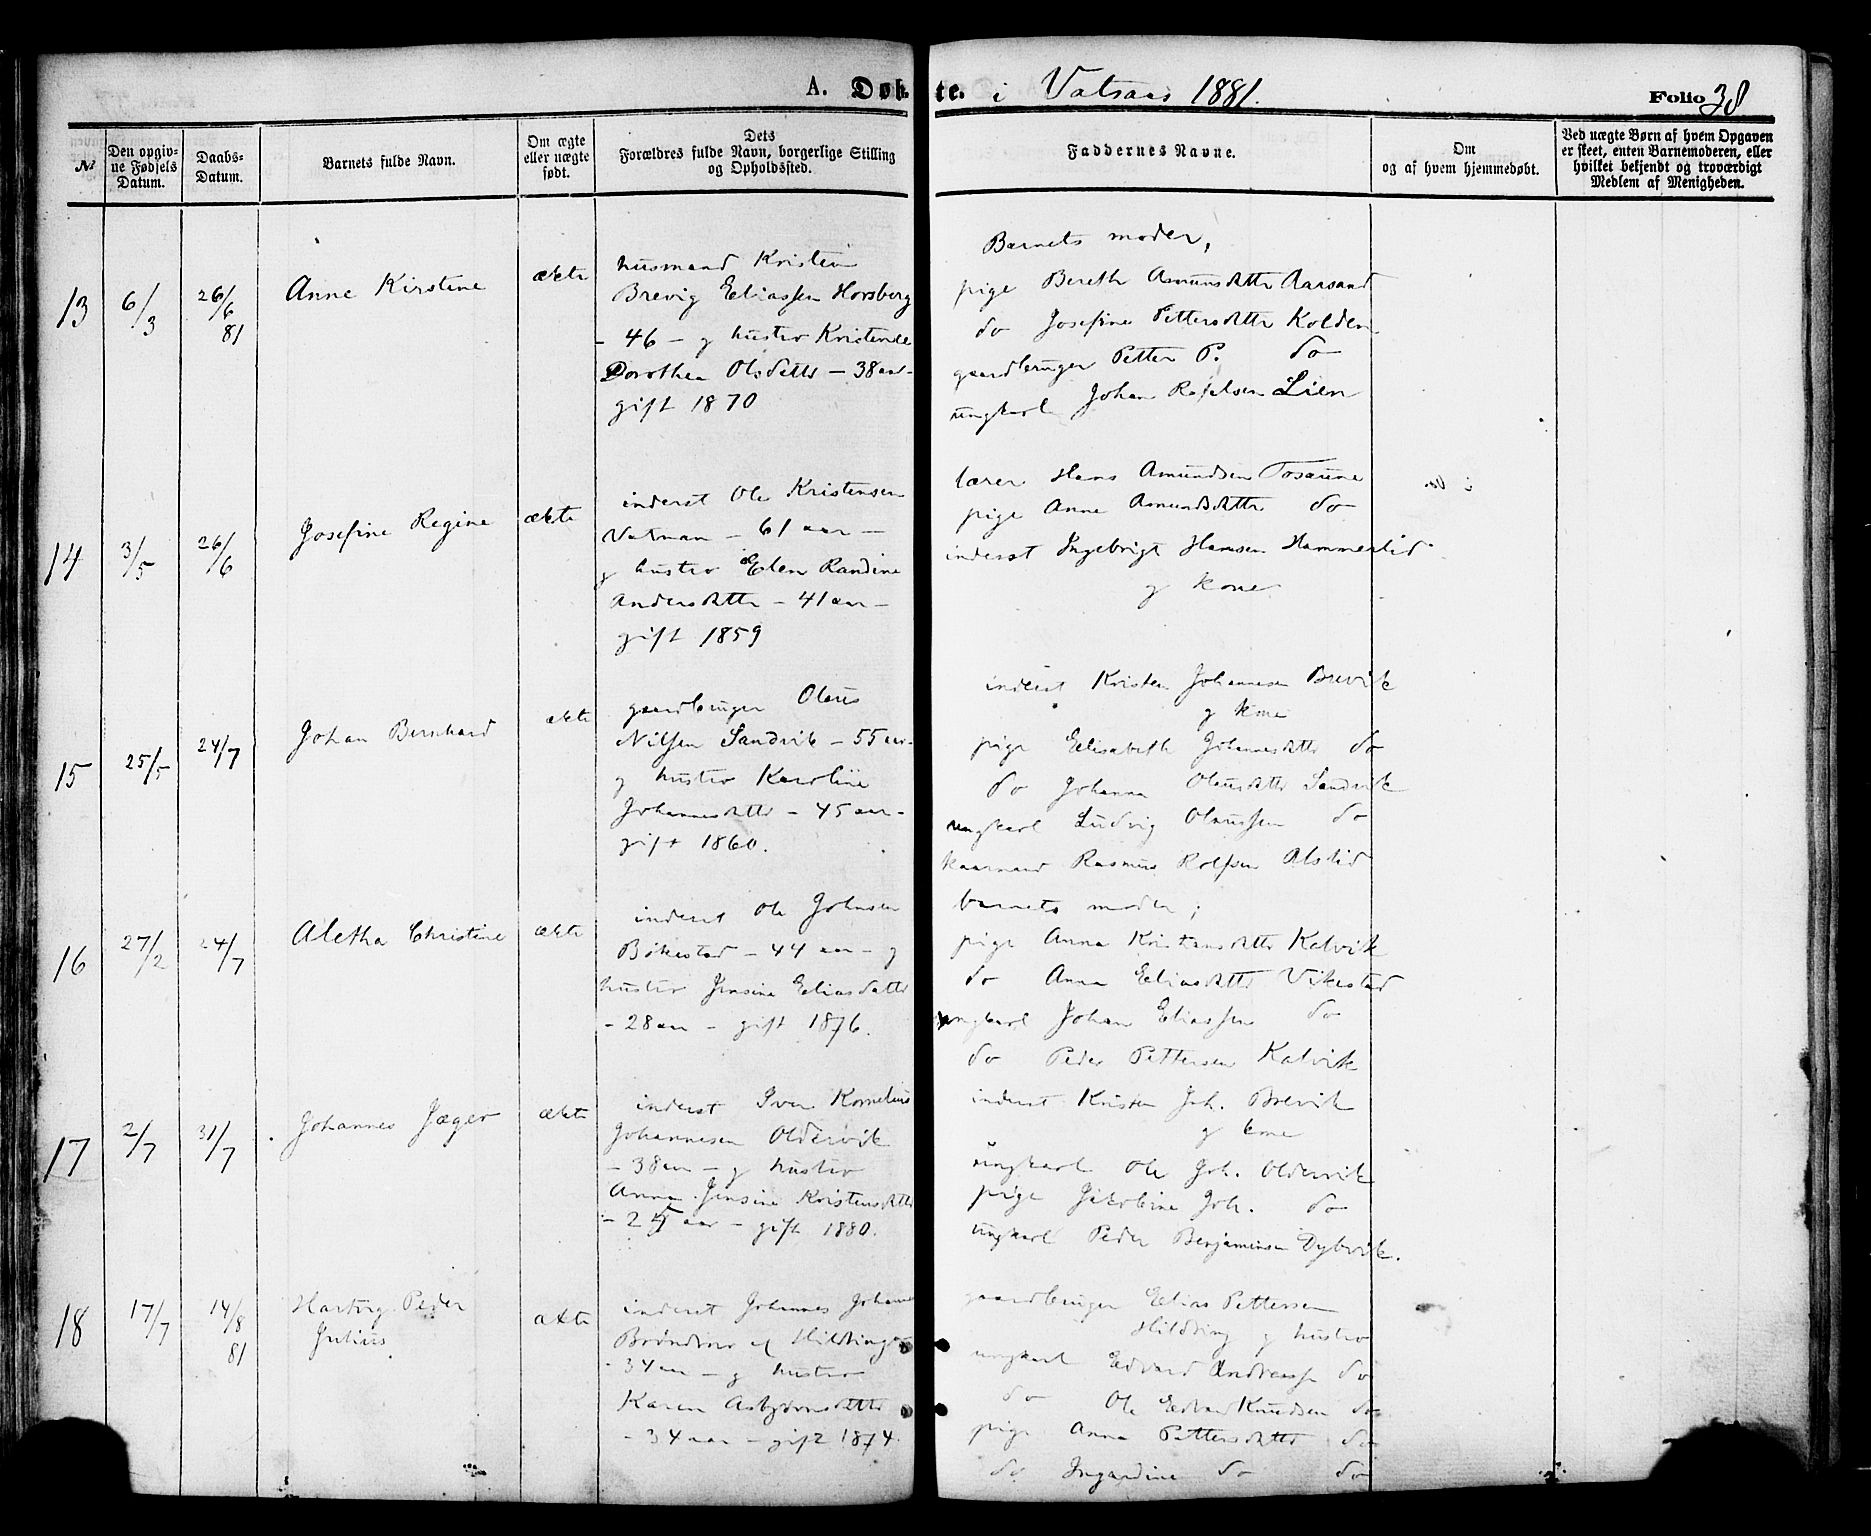 A. Døbte. i Vatsaas 1881. Folio 38
№ | Den opgivne Fødsels Datum. | Daabs-Datum. | Barnets fulde Navn. | Om ægte eller uægte født. | Dets Forældres fulde Navn, borgerlige Stilling og Opholdssted. | Faddernes Navne. | Om og af hvem hjemmedøbt. | Ved uægte Børn af hvem Opgaven er skeet, enten Barnemoderen, eller hvilket bekjendt og troværdigt Medlem af Menigheden.
13 6/3 26/6 81 Anne Kirstine ækte
husmand Kristen
Brevig Eeliassen Horsberg
- 46 - g hustro Kristende
Dorothea Olsdettr - 38 aar -
gift 1870
Barnets moder,
pige Bereth Asmunsdattr Aarsand
do Josefine Pettersdattr Kolden
gaardbruger Petter P. do
ungkarl Johan Lien
14 3/5 26/6 Josefine Regine ækte
inderst Ole Kristensen
- 61 aar -
g hustro Elen Randine
Andersdattr - 41 aar -
gift 1859
lærer Hans Amundsen Tosaune
pige Anne Asmundsdattr do
inderst Ingebrigt Hansen Hammerlid
g kone
15 25/5 24/7 Johan Bernhard ækte
gaardbruger Olaus
Nilsen Sandvik - 55 aar -
g hustro Karoline
Johannesdattr - 45 aar -
gift 1860.
inderst Kristen Johannesen Brevik
g kone
pige Eelisabeth Johannesdattr do
do Johanna Olausdattr Sandvik
ungkarl Ludvig Olaussen do
kaarmand Rasmus Rolfsen Alslid
16 27/2 24/7 Aletha Christine ækte
inderst Ole Johnsen
Bøkestad - 44 aar - g
hustro Jensine Eeliasdattr
- 28 aar - gift 1876.
barnets moder;
pige Anna Kristensdattr Kalvik
do Anna Eeliasdattr Vikestad
ungkarl Johan Eliassen do
do Peder Pettersen Kalvik
17 2/7 31/7 Johannes Jæger ækte
inderst Iver Kornelius
Johannesen Oldervik
- 38 aar - g hustro
Anna Jensine Kristensdattr
- 25 aar - gift 1880.
inderst Kristen Joh. Brevik
g kone
ungkarl Ole Joh. Oldervik
pige Jakobine Joh. do
ungkarl Peder Benjaminsen Dybvik.
18 17/7 14/8 81 Hartvig Peder
Julius ækte
inderst Johannes Johann
af Hildring
- 34 aar - g hustro
Karen Asbjørnsdattr
- 34 aar - gift 1874.
gaardbruger Eelias Pettersen
Hildring g hustro
ungkarl Edvard Andreass do
do Ole Edvard Knudsen do
pige Anna Pettersdattr do
do Ingardine do do